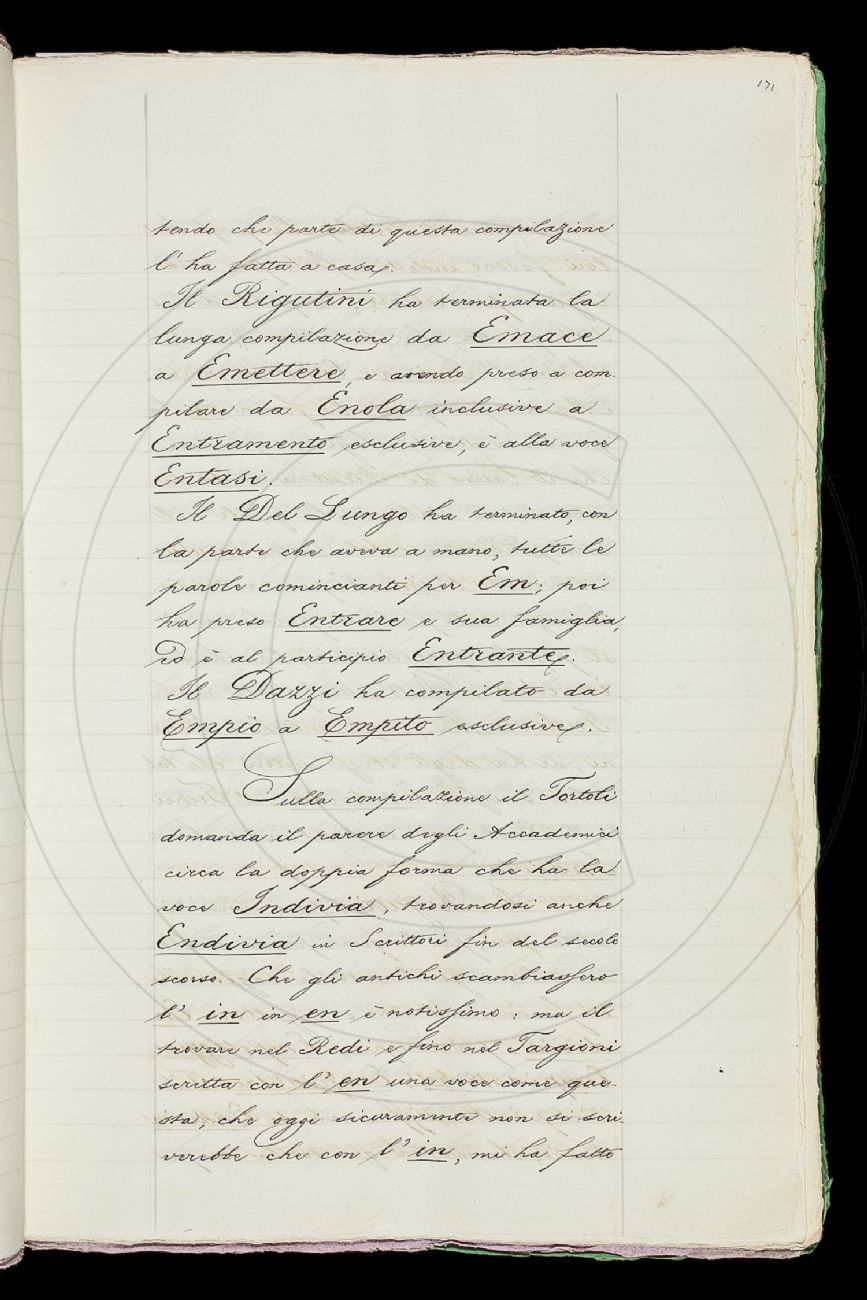 171
tendo che parte di questa compilazione
l'ha fatta a casa.
Il Rigutini ha terminata la
lunga compilazione da Emace
a Emettere, e avendo preso a com-
pilare da Enola inclusive a
Entramento esclusive, è alla voce
Entasi.
Il Del Lungo ha terminato, con
la parte che aveva a mano, tutte le
parole comincianti per Em; poi
ha preso Entrare e sua famiglia,
ed è al participio Entrante.
Il Dazzi ha compilato da
Empio a Empito esclusive.
Sulla compilazione il Tortoli
domanda il parere degli Accademici
circa la doppia forma che ha la
voce Indivia, trovandosi anche
Endivia in Scrittori fin del secolo
scorso. Che gli antichi scambiassero
l'in in en è notissimo: ma il
trovare nel Redi e fino nel Targioni
scritta con l'en una voce come que-
sta, che oggi sicuramente non si scri-
verebbe che con l'in, mi ha fatto